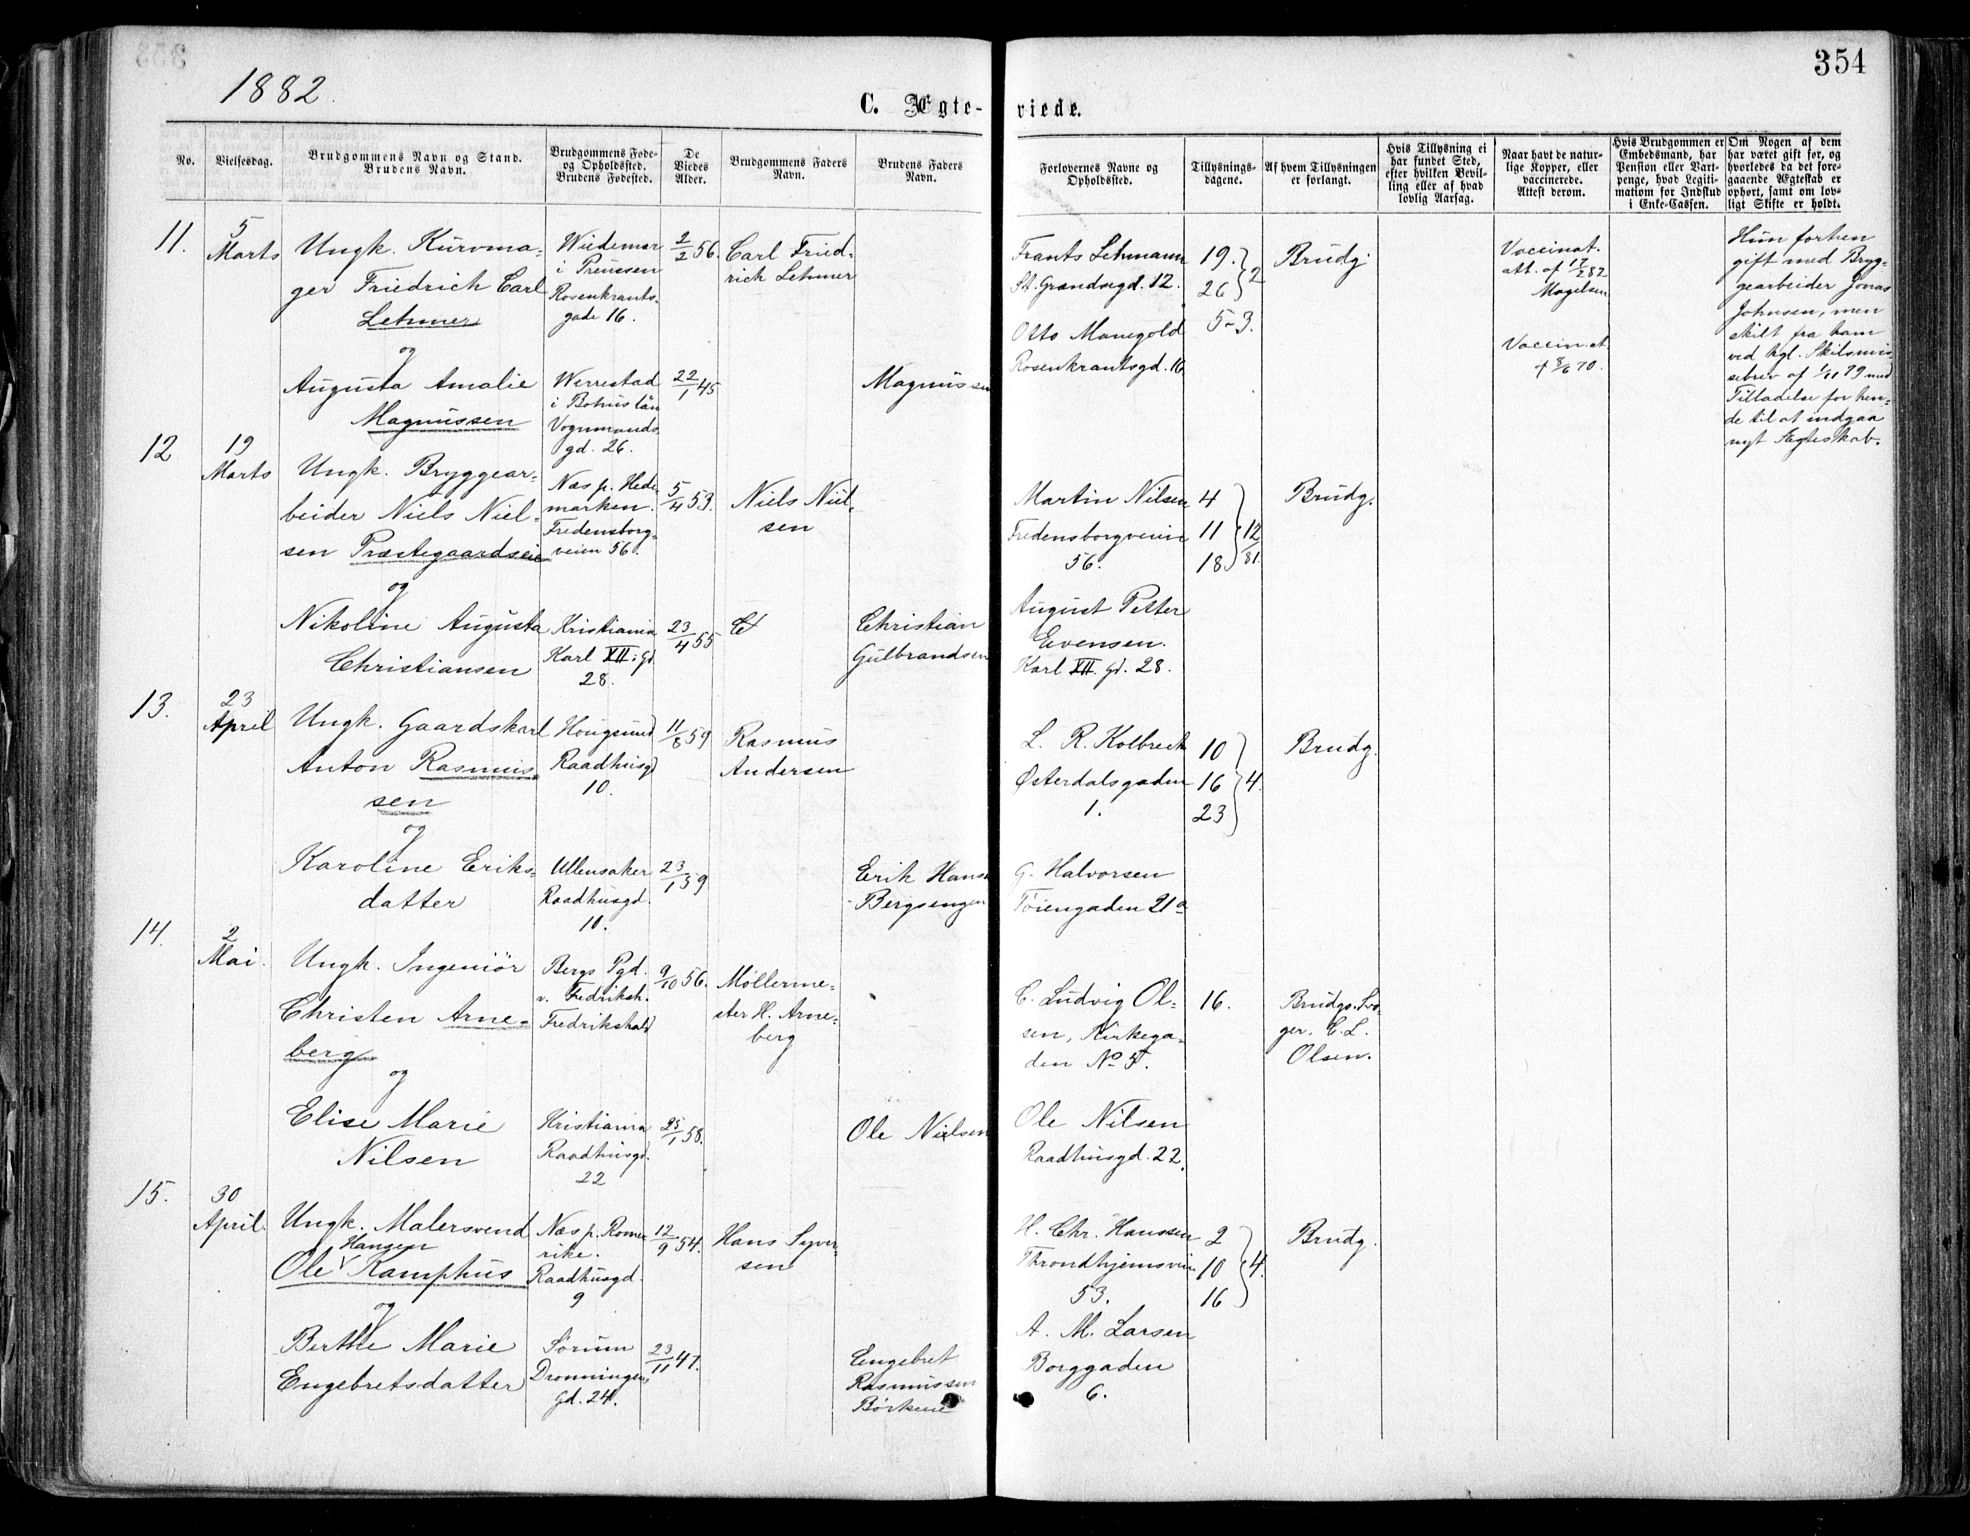 354
1882.
C. Ægte-
viede.
No.
Vielsesdag.
Brudgommens Navn og Stand.
Brudens Navn.
Brudgommens Føde-
og Opholdssted.
Brudens Fødested.
De
Viedes
Alder.
Brudgommens Faders
Navn.
Brudens Faders
Navn.
Forlovernes Navne og
Opholdssted.
Tillysnings-
dagene.
Af hvem Tillysningen
er forlangt.
Hvis Tillysning ei
har fundet Sted,
efter hvilken Bevil-
ling eller af hvad
lovlig Aarsag.
Naar havt de natur-
lige Kopper, eller
vaccinerede.
Attest derom.
Hvis Brudgommen er
Embedsmand, har
Pension eller Vart-
penge, hvad Legiti-
mation for Indskud
i Enke-Cassen.
Om Nogen af dem
har været gift før, og
hvorledes da det fore-
gaaende Ægteskab er
ophørt, samt om lov-
ligt Skifte er holdt.
11.
5
Marts
Ungk. Kurvma-
ger Friedrich Carl
Lehmer
og
Augusta Amalie
Magnussen
Wiedemar
i Preussen
Rosenkrants-
gade 16.
Werrestad
i Bohuslän
Vognmands-
gd. 26.
2/2 56.
22/1 45
Carl Fried-
rich Lehmer
Magnussen
Frants Lehmann
St. Grændsegd. 12.
Otto Manegold
Rosenkrantsgd. 16
19.
26 } 2
5-3.
Brudg.
Vaccinat.
att. af 17/2 82
Magelsen
Vaccin. at
f 8/6 70.
Hun forhen
gift med Bryg-
gearbeider Jonas
Johnsen, men
skilt fra ham
ved kgl. Skilsmis-
sebrev af 1/11 79 med
Tilladelse for hen-
de til at indgaa
nyt Ægteskab.
12
19
Marts
Ungk. Bryggear-
beider Niels Niel-
sen Præstegaardseie
og
Nikoline Augusta
Christiansen
Næs p. Hede-
marken.
Fredensborg-
veien 56.
Kristiania
Karl XII: Gd.
28.
5/4 53.
23/4 55
Niels Niel-
sen
Christian
Gulbrandsen
Martin Nilsen
Fredensborgveien
56.
August Petter
Evensen.
Karl XII. Gd. 28.
4
11
18 } 12/81
Brudg.
13.
23
April
Ungk. Gaardskarl
Anton Rasmus-
sen
og
Karoline Eriks-
datter
Hougsund
Raadhusgd
10.
Ullensaker
Raadhusgd.
10.
11/8 59
23/1 59
Rasmus
Andersen
Erik Hans.
Bergsengen
L. R. Kolbreck
Østerdalsgaden
1.
G. Halvorsen
Tøiengaden 21a
10
16
23 } 4.
Brudg.
14.
2
Mai.
Ungk. Ingeniör
Christen Arne-
berg
og
Elise Marie
Nilsen
Bergs Pgd.
v. Fredriksh.
Fredrikshald
Kristiania
Raadhusgd.
22
9/10 56.
25/1 58.
Møllerme-
ster H. Arne-
berg
Ole Nielsen
C. Ludvig Ol-
sen, Kirkega-
den No 5.
Ole Nilsen
Raadhusgd. 22.
16.
Brudgs. Svo-
ger, C. L.
Olsen.
15.
30
April.
Ungk. Malersvend
Hansen
Ole Kamphus
og
Berthe Marie
Engebretsdatter
Næs p. Rome-
rike.
Raadhusgd.
9
Sørum
Dronningens
Gd. 24.
12/9 54.
23/11 47.
Hans Syver-
sen
Engebret
Rasmussen
H. Chr. Hanssen
Throndhjemsvein
53.
A. M. Larsen
Borggaden
6.
2
10
16 } 4.
Brudg.